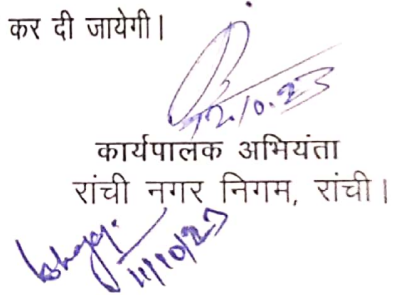 कर दी जायेगी।
12.10.23
कार्यपालक अभियंता
रांची नगर निगम, रांची।
11/10/23